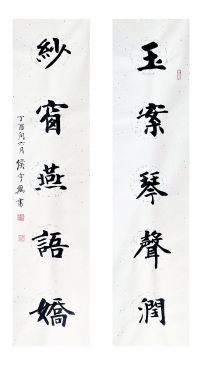 玉案琴聲潤
紗窗燕語嬌
丁酉閏六月侯書